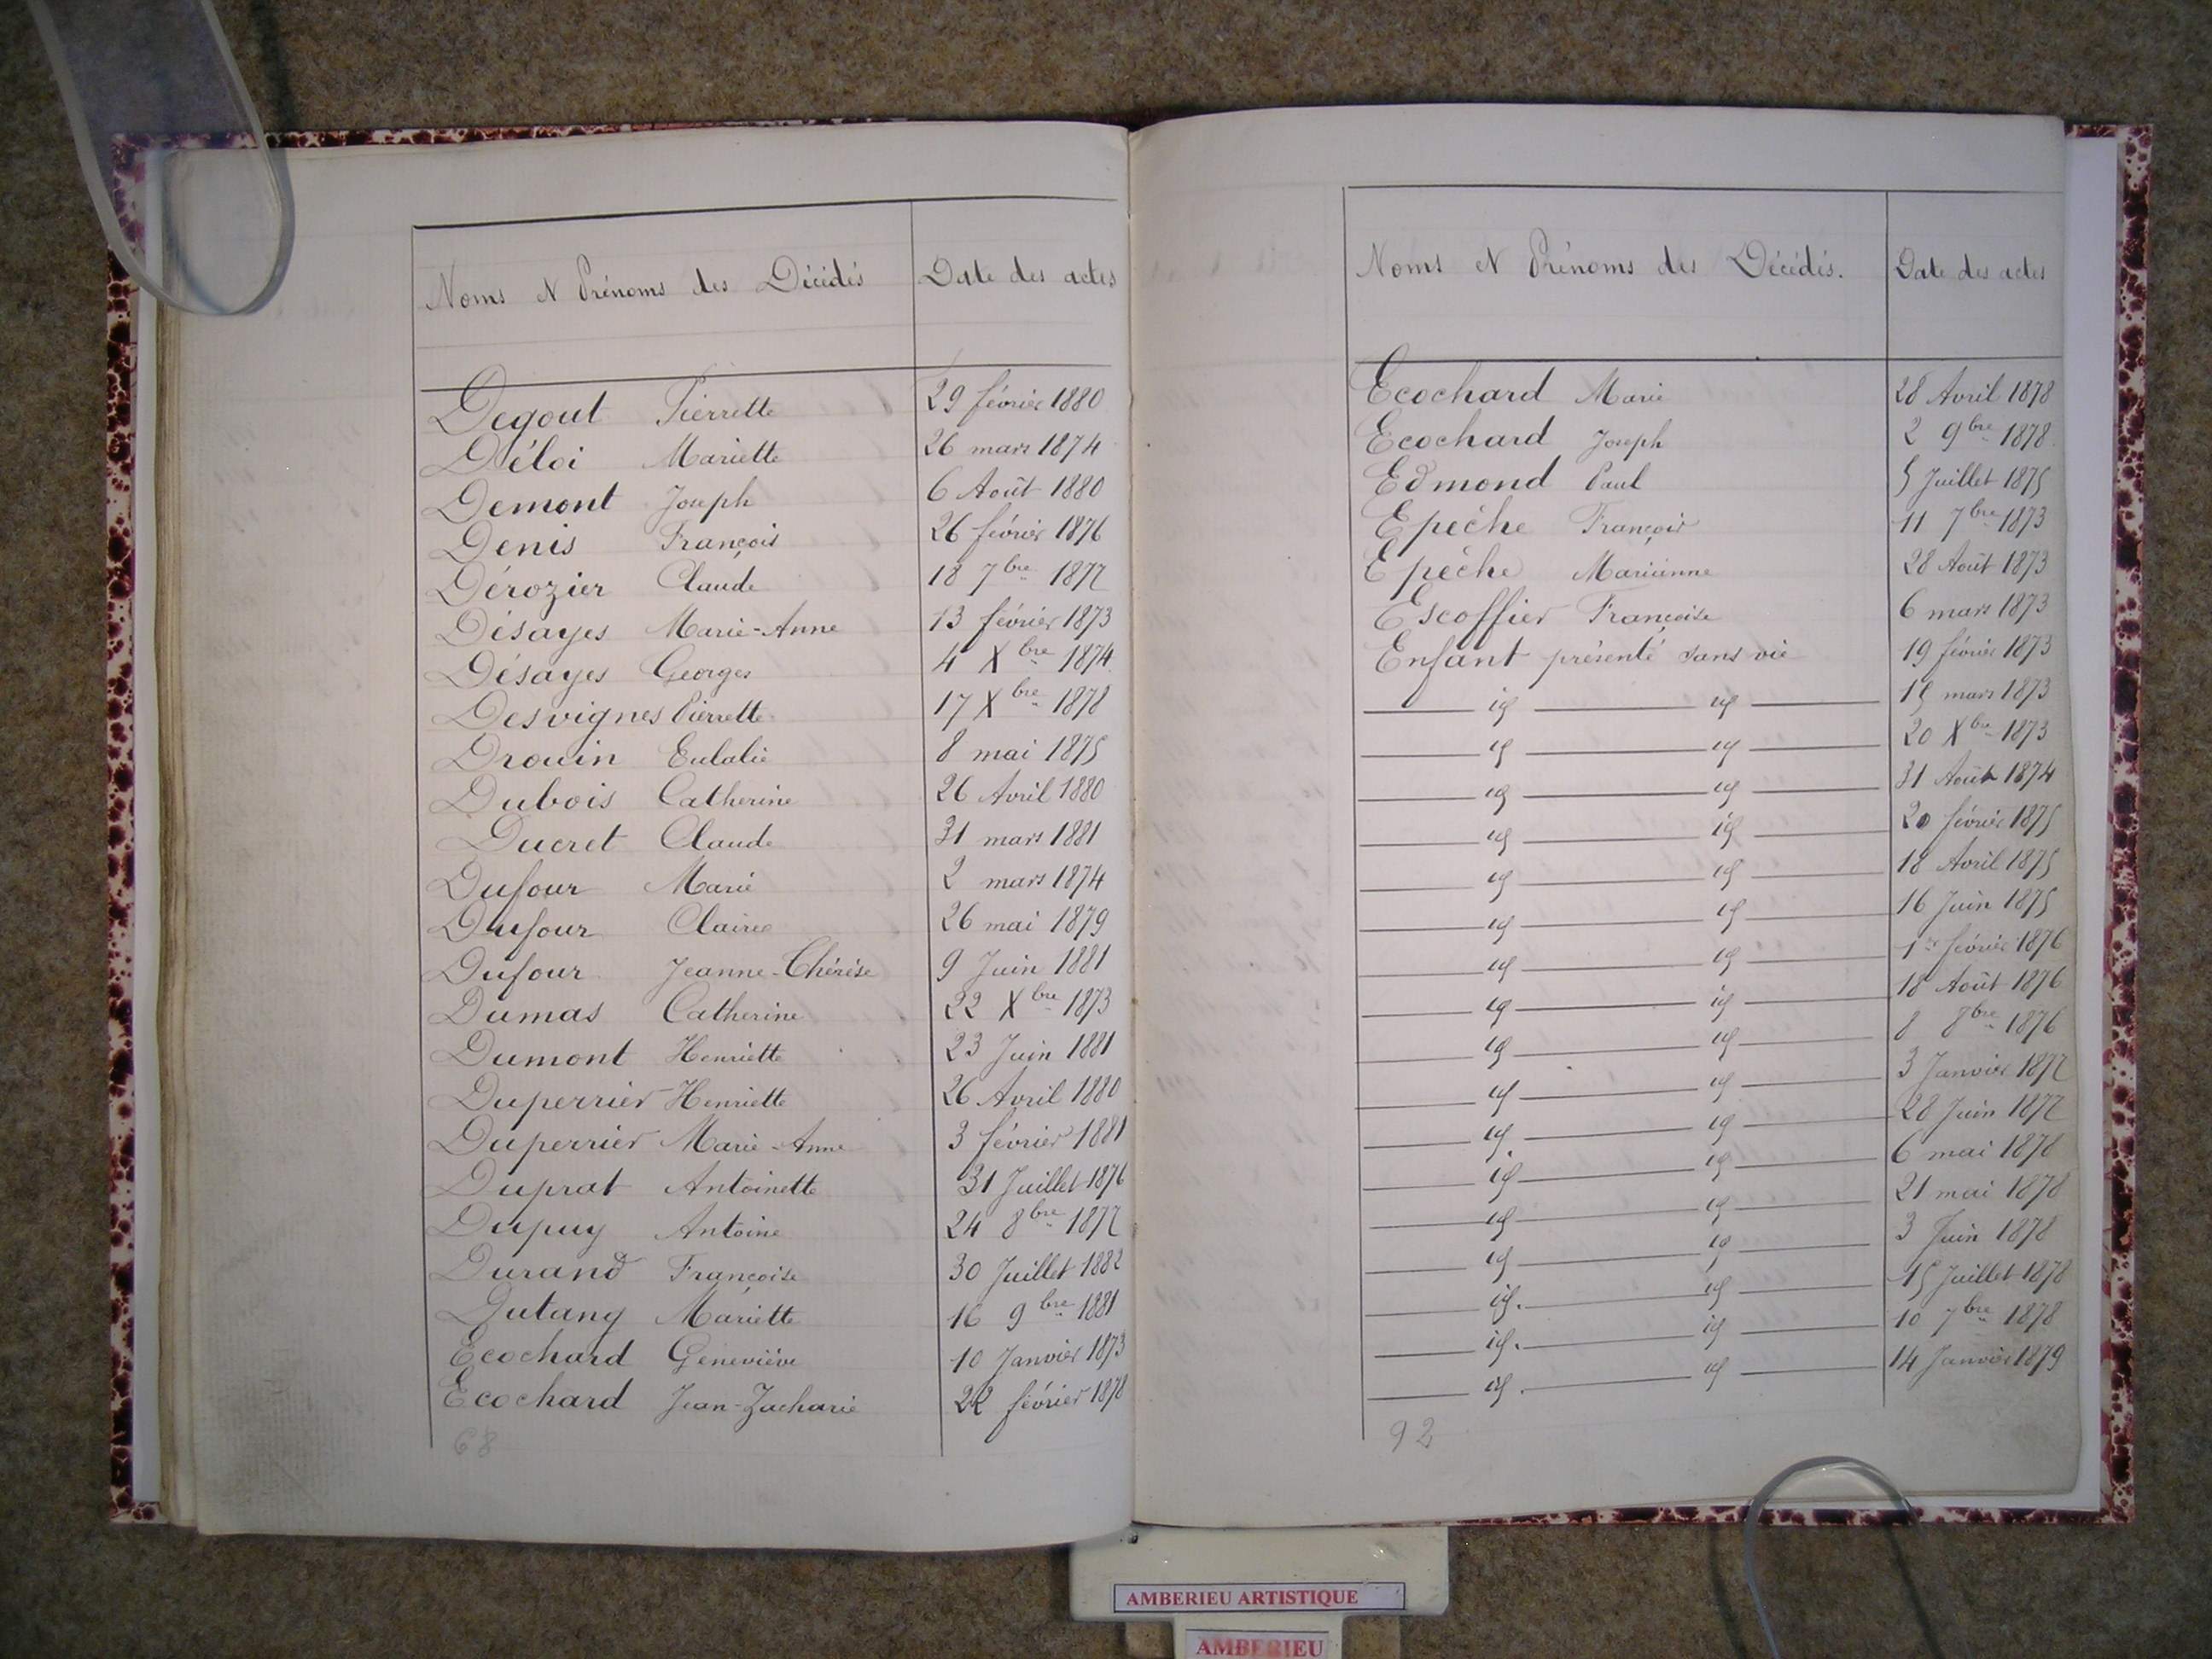 Noms & Prénoms des Décédés Date des actes
Degout Pierrette 29 février 1880
Déloi Mariette 26 mars 1874
Demont Joseph 6 Août 1880
Denis François 26 février 1876
Dérozier Claude 18 7bre 1877
Désayes Marie-Anne 13 février 1873
Désayes Georges 4 Xbre 1874
Desvignes Pierrette 17 Xbre 1878
Drouin Eulalie 8 mai 1875
Dubois Catherine 26 Avril 1880
Ducret Claude 31 mars 1881
Dufour Marie 2 mars 1874
Dufour Claire 26 mai 1879
Dufour Jeanne-Thérèse 9 Juin 1881
Dumas Catherine 22 Xbre 1873
Dumont Henriette 23 Juin 1881
Duperrier Henriette 26 Avril 1880
Duperrier Marie-Anne 3 février 1881
Duprat Antoinette 31 Juillet 1876
Dupuy Antoine 24 8bre 1877
Durand Françoise 30 Juillet 1882
Dutang Mariette 16 9bre 1881
Ecochard Geneviève 10 Janvier 1873
Ecochard Jean-Zacharie 22 février 1878
68
Noms & Prénoms des Décédés. Date des actes
Ecochard Marie 28 Avril 1878
Ecochard Joseph 2 9bre 1878
Edmond Paul 5 Juillet 1875
Epèche François 11 7bre 1873
Epèche Marianne 28 Août 1873
Escoffier Françoise 6 mars 1873
Enfant présenté sans vie 19 février 1873
id id mars 1873
id id 20 Xbre 1873
id id 31 Août 1874
id id 20 février 1875
id id 18 Avril 1875
id id 16 Juin 1875
id id 1er février 1876
id id 18 Août 1876
id id 8 8bre 1876
id id 3 Janvier 1877
id id 28 Juin 1877
id id 6 mai 1878
id id 21 mai 1878
id id 3 Juin 1878
id. id 15 Juillet 1878
id. id 10 7bre 1878
id. id 14 Janvier 1879
92
AMBERIEU ARTISTIQUE
AMBERIEU